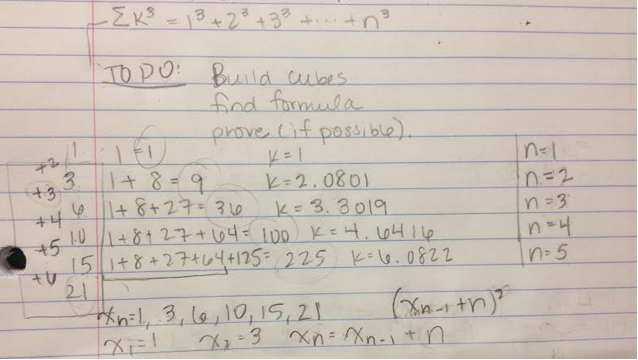 Σk³ = 1³ + 2³ + 3³ + ... + n³
TO DO: Build cubes
find formula
prove (if possible).
1 1 = 1 k = 1 n = 1
+2
3 1 + 8 = 9 k = 2.0801 n = 2
+3
6 1 + 8 + 27 = 36 k = 3.3019 n = 3
+4
10 1 + 8 + 27 + 64 = 100 k = 4.6416 n = 4
+5
15 1 + 8 + 27 + 64 + 125 = 225 k = 6.0822 n = 5
+6
21
xn = 1, 3, 6, 10, 15, 21 (xn-1 + n)²
x1 = 1 x2 = 3 xn = xn-1 + n